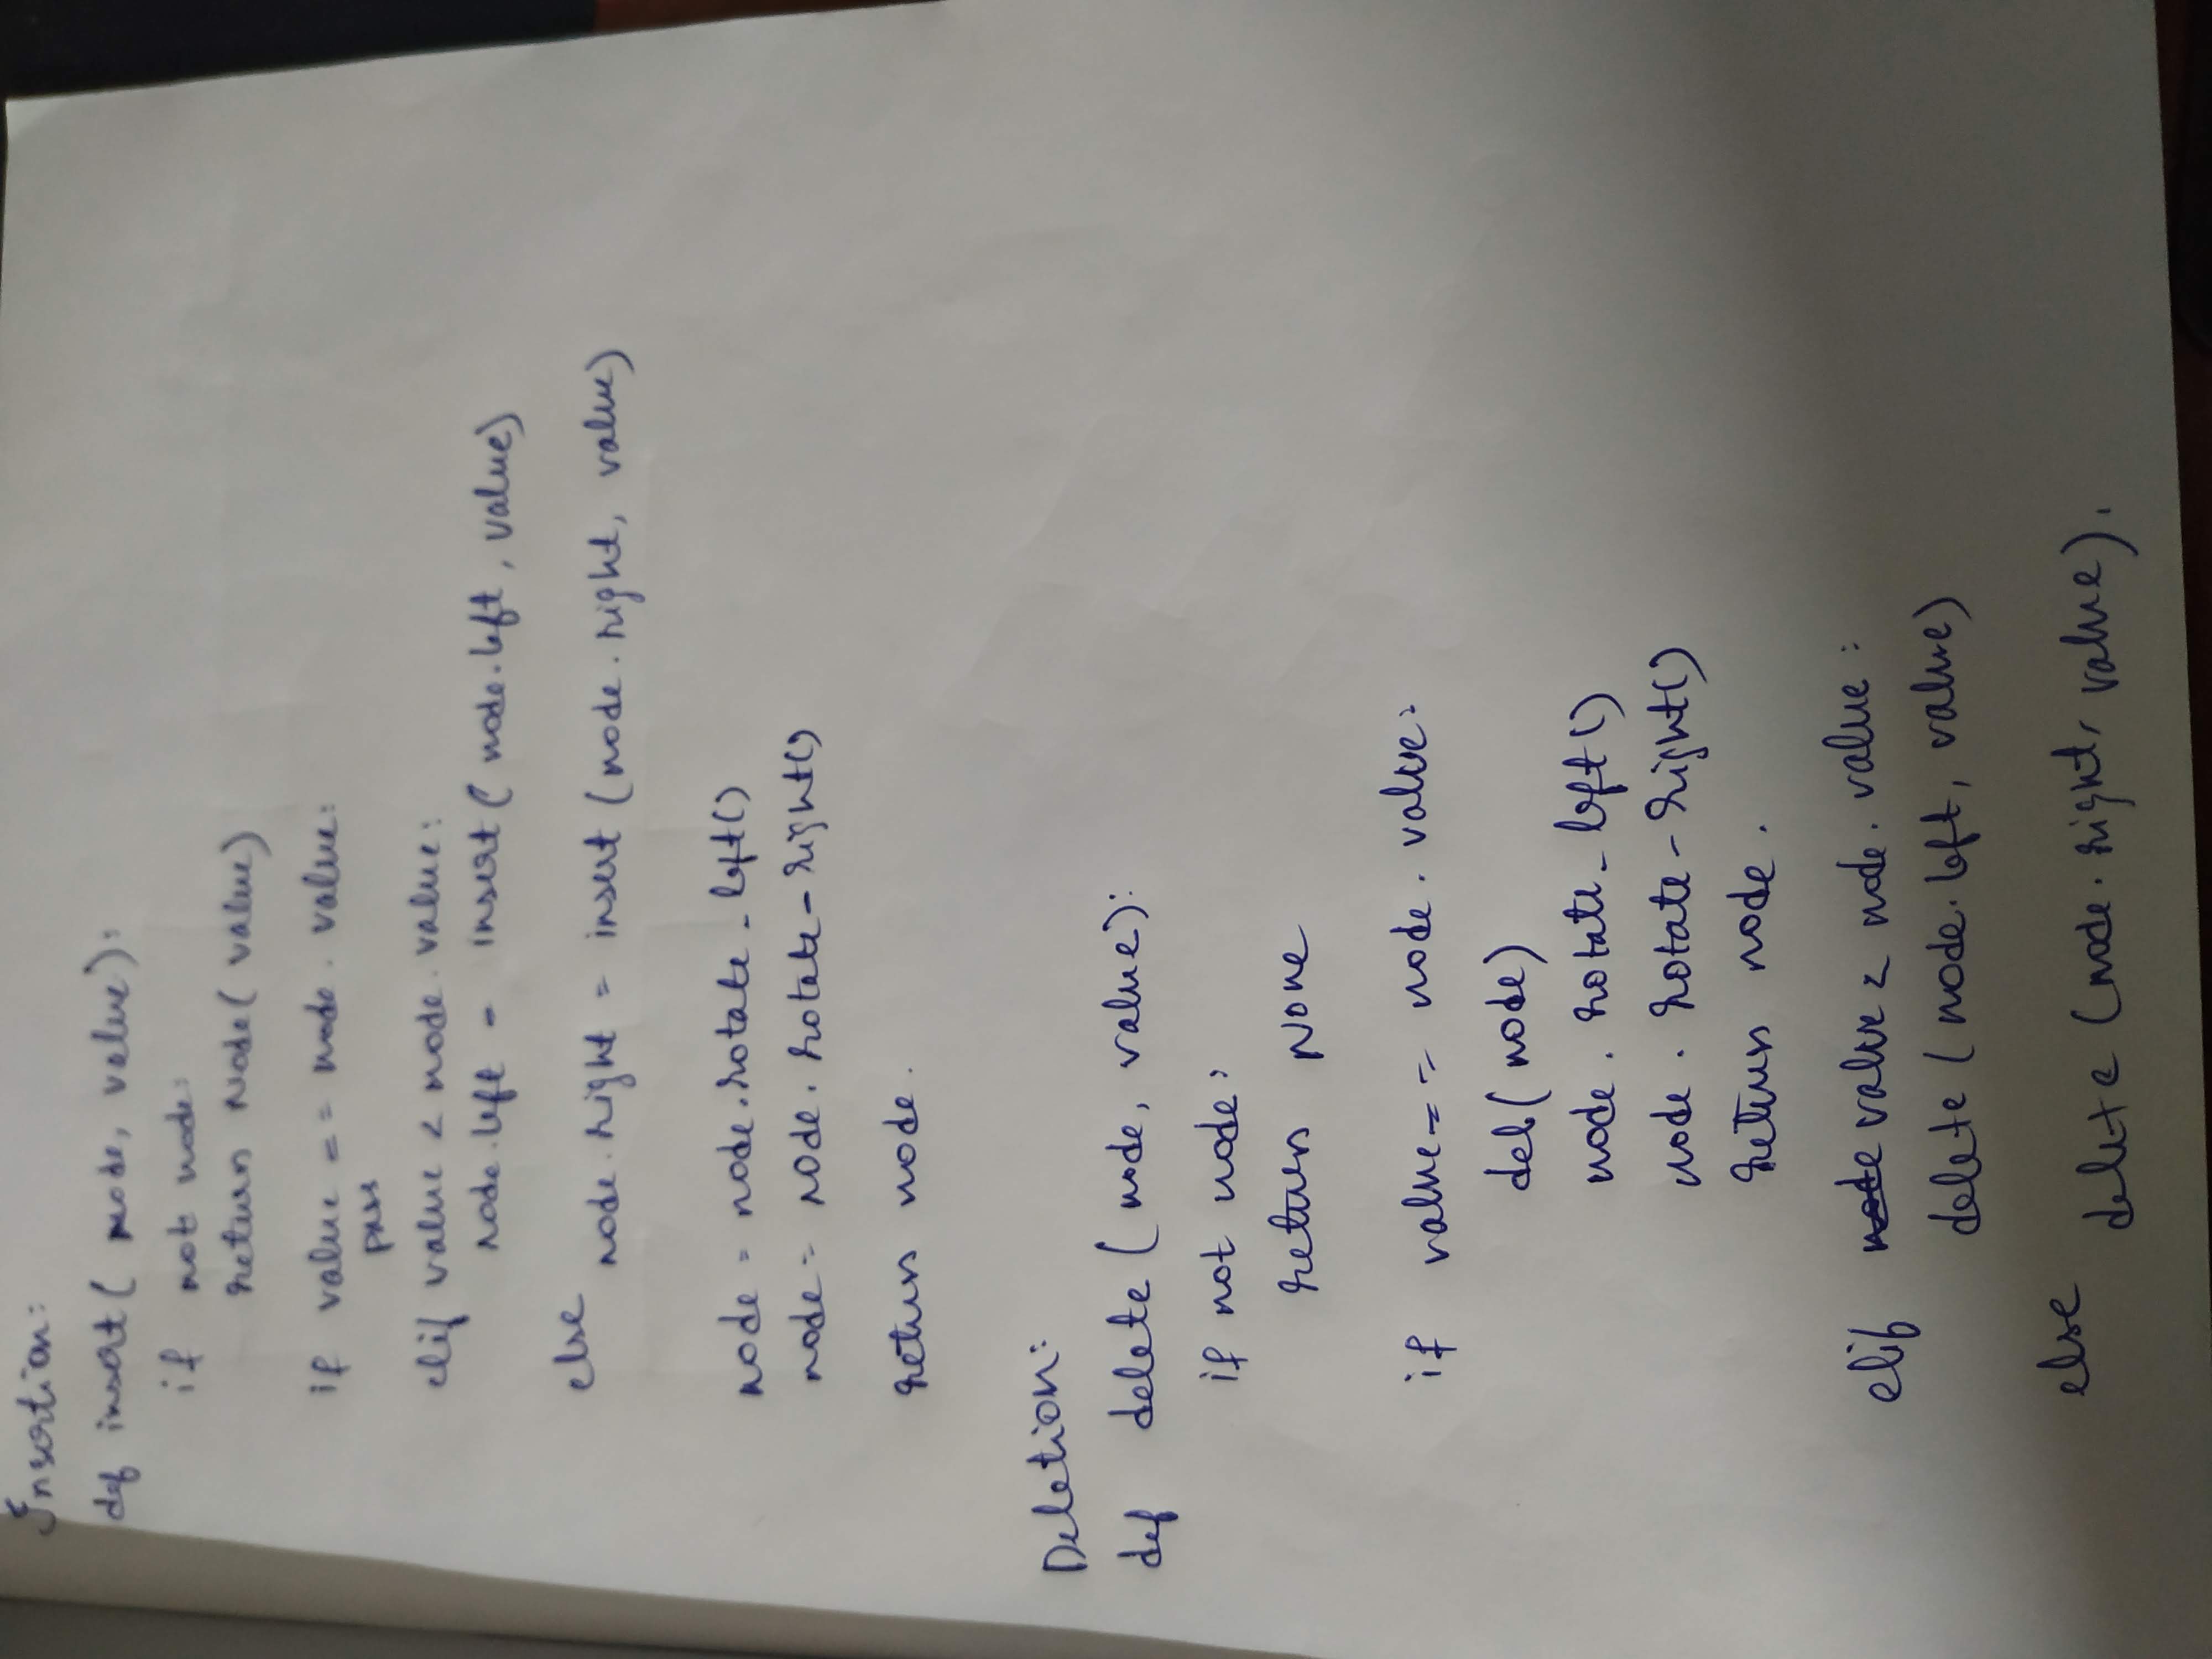 Insertion:
def insert( node, value):
if not node:
return Node( value)
if value == node. value:
pass
elif value < node. value:
node.left = insert( node.left, value)
else
node. right = insert (node. right, value)
node = node.rotate_left()
node = node. rotate-right()
return node.
Deletion:
def delete ( node, value):
if not node:
return None
if value == node. value:
del( node)
node. rotate_left()
node. rotate-right()
return node.
elif node value < node. value:
delete ( node. left, value)
else
delete (node. right, value).